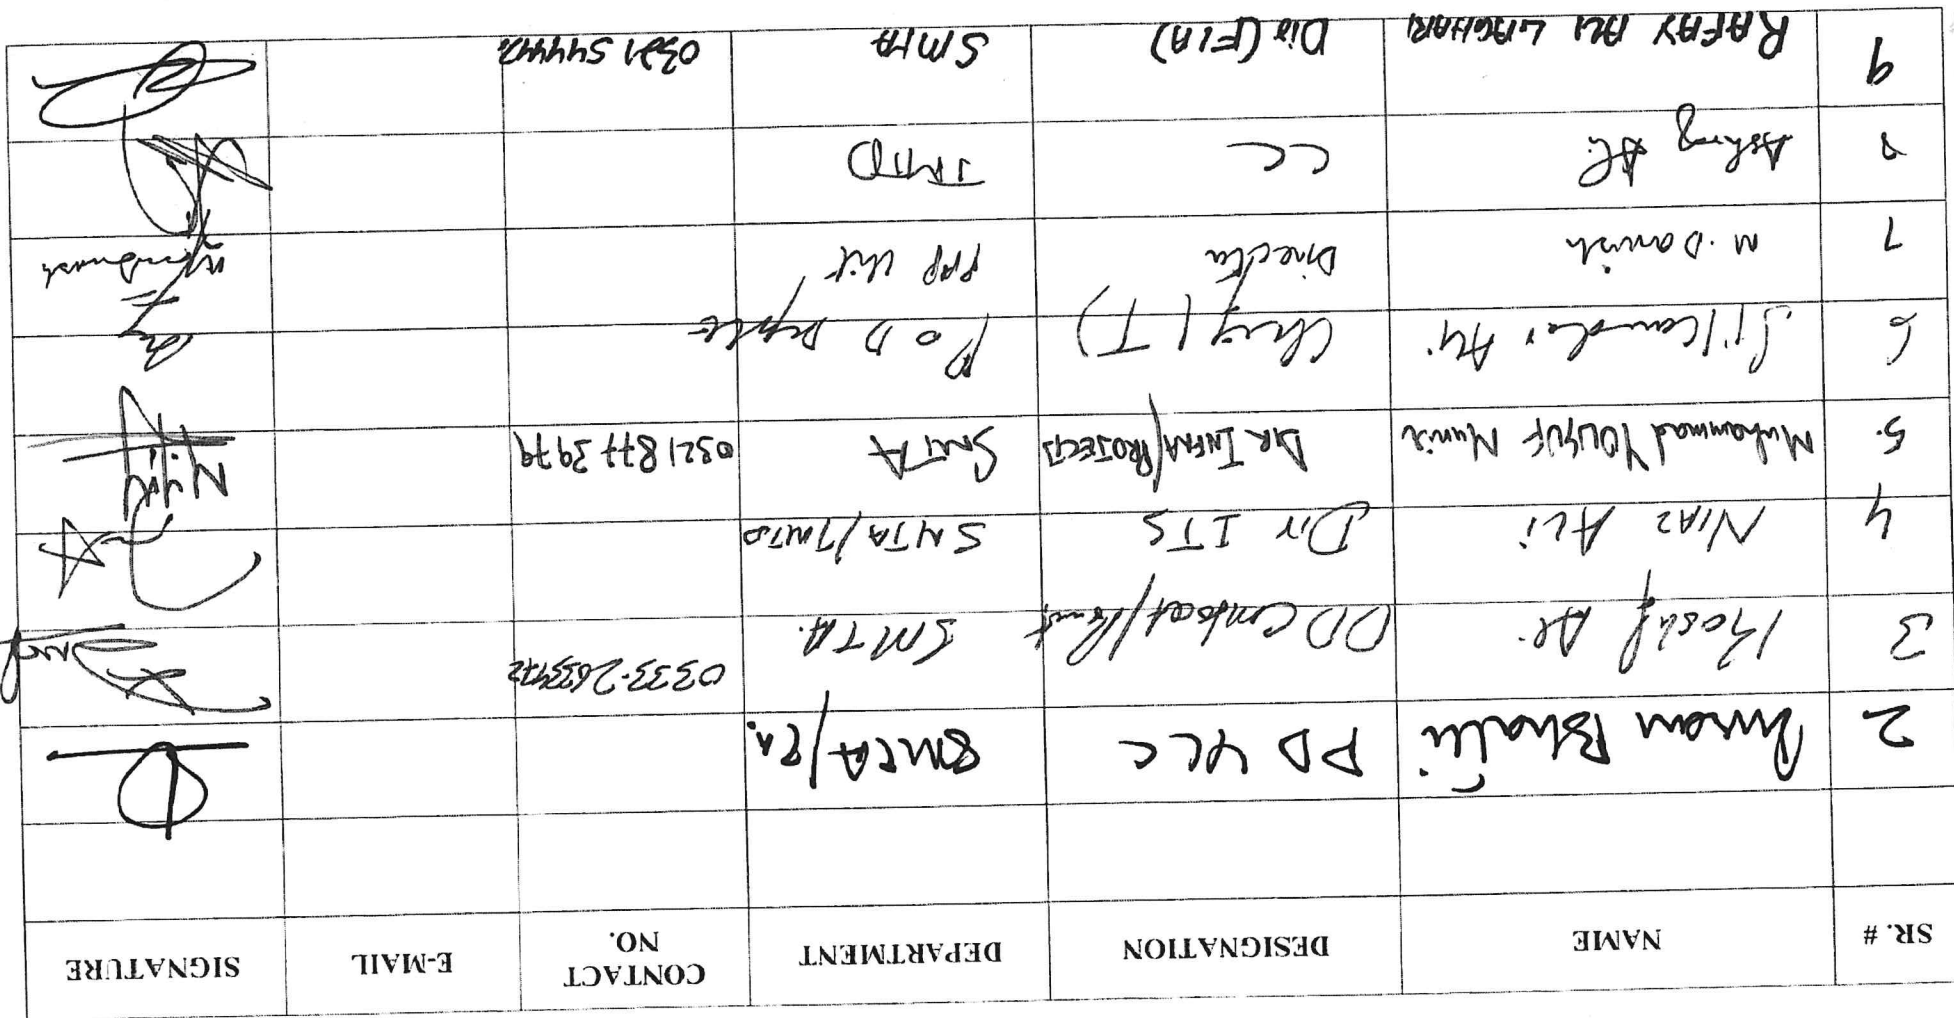 SR. # NAME DESIGNATION DEPARTMENT CONTACT NO. E-MAIL SIGNATURE
2 Bhatti PD YLC
3 Kashif Ali DD Contract/ SMTA. 0333-2633972
4 NIAZ ALi Dir ITS SMTA/TMTD
5. Muhammad YOUSUF Munir DR. INFRA/PROJECTS SMTA 0321 877 3979
6 Sikander Ali Chief (T) P&D Deptt
7 M. Danish Director PPP Unit
8 Ashraf Ali CC TMTD
9 RAFAY ALI LAGHARI Dir (F/A) SMTA